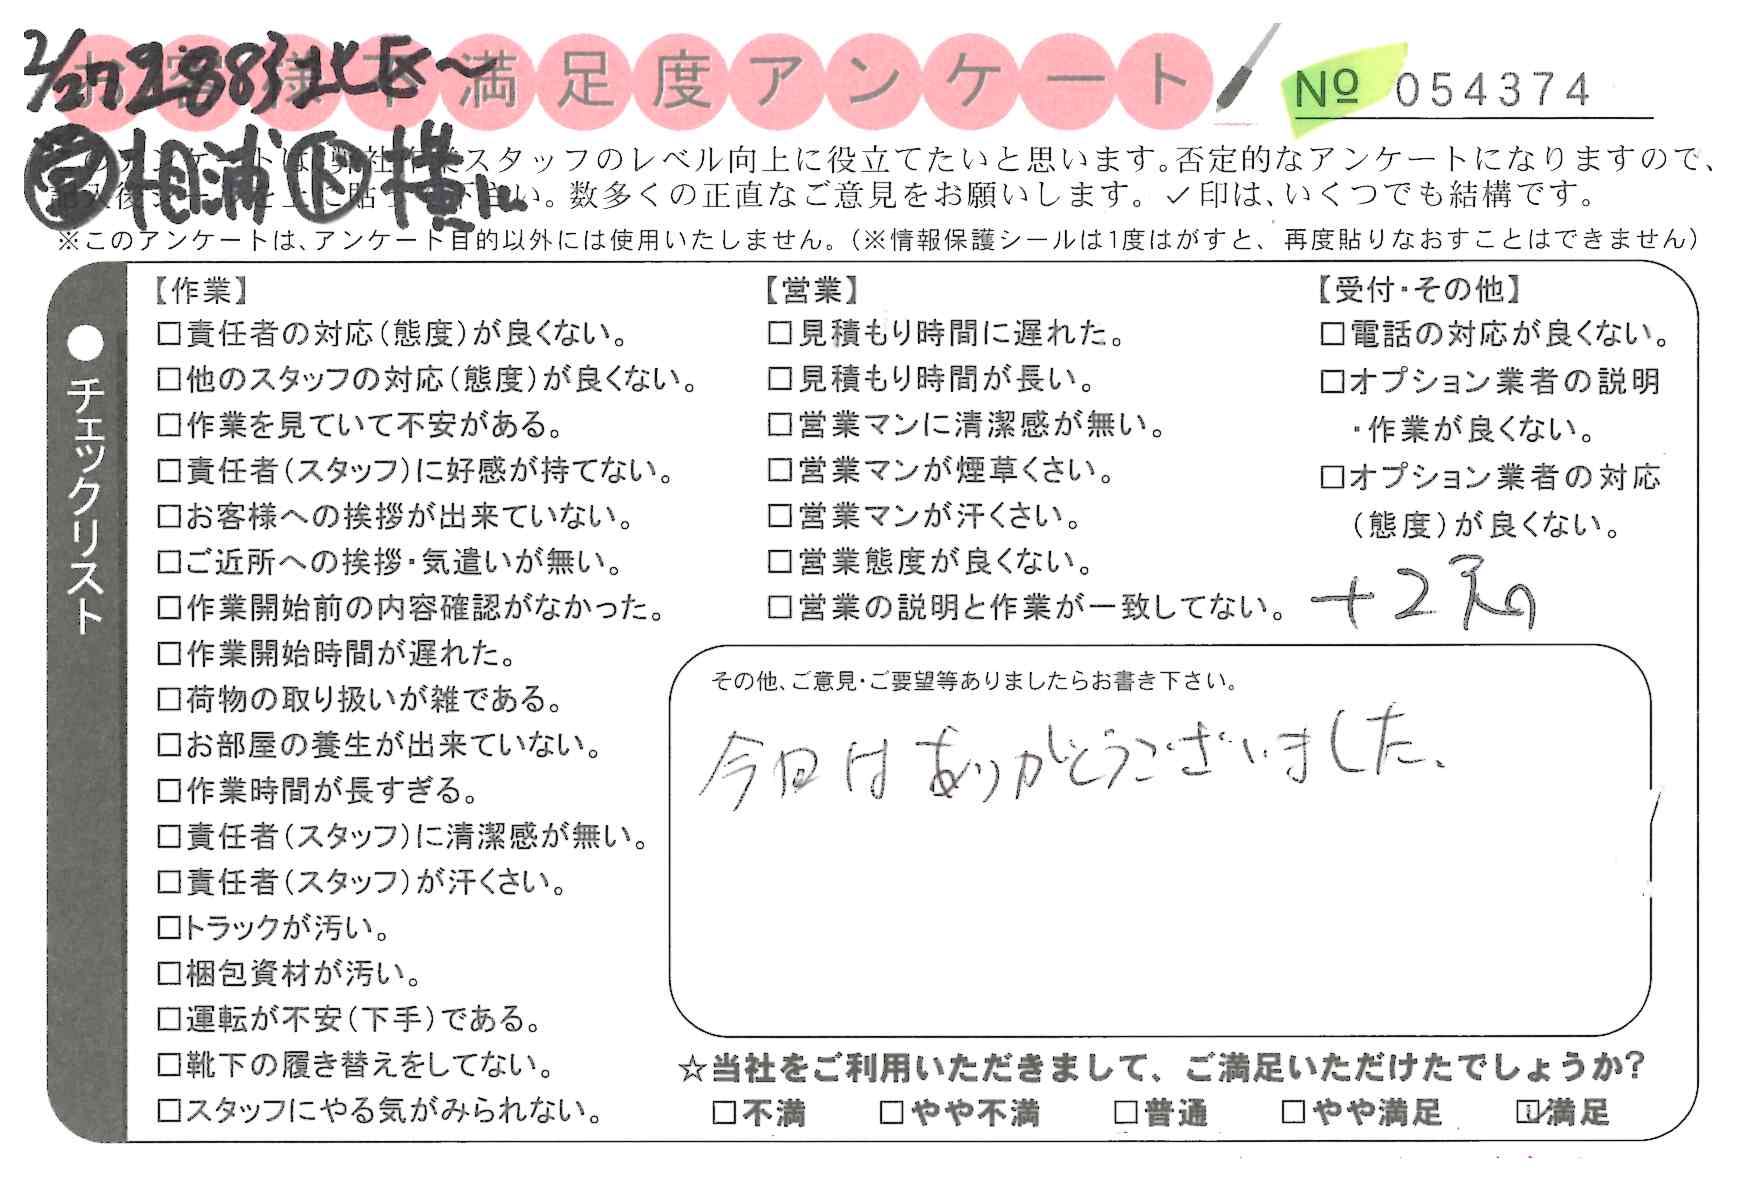 お客様不満足度アンケート
№ 054374
2/27 2883
相浦 横山
スタッフのレベル向上に役立てたいと思います。否定的なアンケートになりますので、
い。数多くの正直なご意見をお願いします。✓印は、いくつでも結構です。
※このアンケートは、アンケート目的以外には使用いたしません。（※情報保護シールは1度はがすと、再度貼りなおすことはできません）
●チェックリスト
【作業】
□責任者の対応（態度）が良くない。
□他のスタッフの対応（態度）が良くない。
□作業を見ていて不安がある。
□責任者（スタッフ）に好感が持てない。
□お客様への挨拶が出来ていない。
□ご近所への挨拶・気遣いが無い。
□作業開始前の内容確認がなかった。
□作業開始時間が遅れた。
□荷物の取り扱いが雑である。
□お部屋の養生が出来ていない。
□作業時間が長すぎる。
□責任者（スタッフ）に清潔感が無い。
□責任者（スタッフ）が汗くさい。
□トラックが汚い。
□梱包資材が汚い。
□運転が不安（下手）である。
□靴下の履き替えをしてない。
□スタッフにやる気がみられない。
【営業】
□見積もり時間に遅れた。
□見積もり時間が長い。
□営業マンに清潔感が無い。
□営業マンが煙草くさい。
□営業マンが汗くさい。
□営業態度が良くない。
□営業の説明と作業が一致してない。
【受付・その他】
□電話の対応が良くない。
□オプション業者の説明
・作業が良くない。
□オプション業者の対応
（態度）が良くない。
その他、ご意見・ご要望等ありましたらお書き下さい。
今日はありがとうございました、
☆当社をご利用いただきまして、ご満足いただけたでしょうか?
□不満 □やや不満 □普通 □やや満足 ☑満足